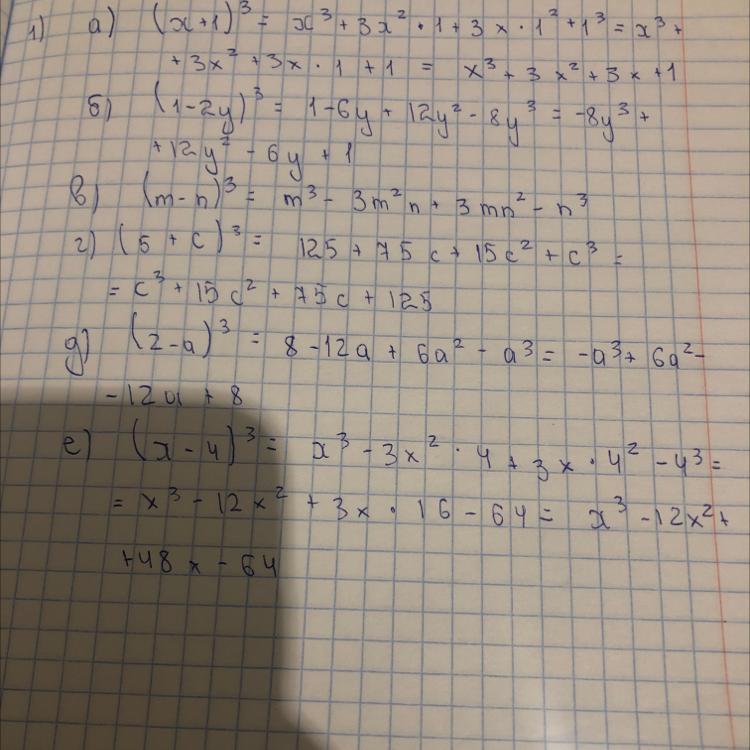 1) а) (x+1)³ = x³ + 3x² · 1 + 3x · 1² + 1³ = x³ +
+ 3x² + 3x · 1 + 1 = x³ + 3x² + 3x + 1
б) (1-2y)³ = 1 - 6y + 12y² - 8y³ = -8y³ +
+ 12y² - 6y + 1
в) (m-n)³ = m³ - 3m²n + 3mn² - n³
г) (5 + c)³ = 125 + 75c + 15c² + c³ =
= c³ + 15c² + 75c + 125
д) (2-a)³ = 8 - 12a + 6a² - a³ = -a³ + 6a² -
- 12a + 8
е) (x - 4)³ = x³ - 3x² · 4 + 3x · 4² - 4³ =
= x³ - 12x² + 3x · 16 - 64 = x³ - 12x² +
+ 48x - 64